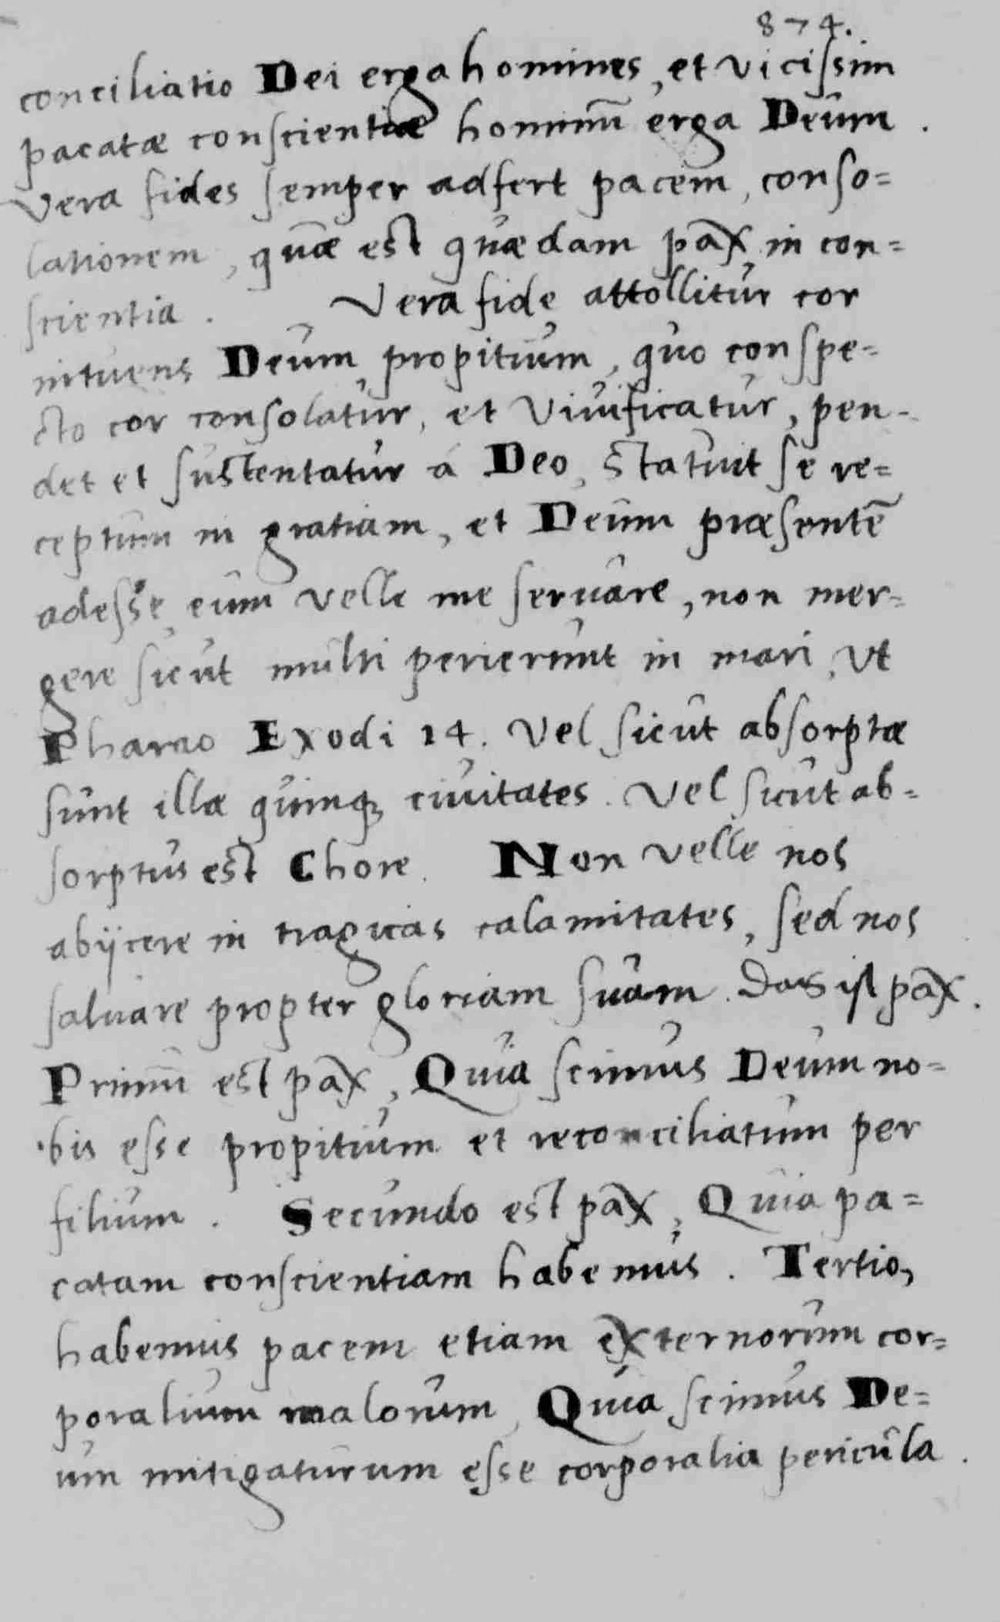 874.
conciliatio Dei erga homines, et vicissim
pacatæ conscientiæ hominū erga Deum.
Vera fides semper adfert pacem, conso=
lationem, quæ est quædam pax in con=
scientia. Vera fide attollitur cor
intuens Deum propitium, quo conspe=
cto cor consolatur, et vivificatur, pen-
det et sustentatur á Deo, statuit se re=
ceptum in gratiam, et Deum præsentē
adesse, eum velle me servare, non mer-
gere sicut multi perierunt in mari, Vt
Pharao Exodi 14. Vel sicut absorptæ
sunt illæ quinqȝ civitates. Vel sicut ab=
sorptus est Chore. Non velle nos
abijcere in tragicas calamitates, sed nos
salvare propter gloriam suam. Das ist pax.
Primū est pax, Quia scimus Deum no=
bis esse propitium et reconciliatum per
filium. Secundo est pax, Quia pa=
catam conscientiam habemus. Tertio,
habemus pacem etiam externorum cor=
poralium malorum, Quia scimus De=
um mitigaturum esse corporalia pericula.